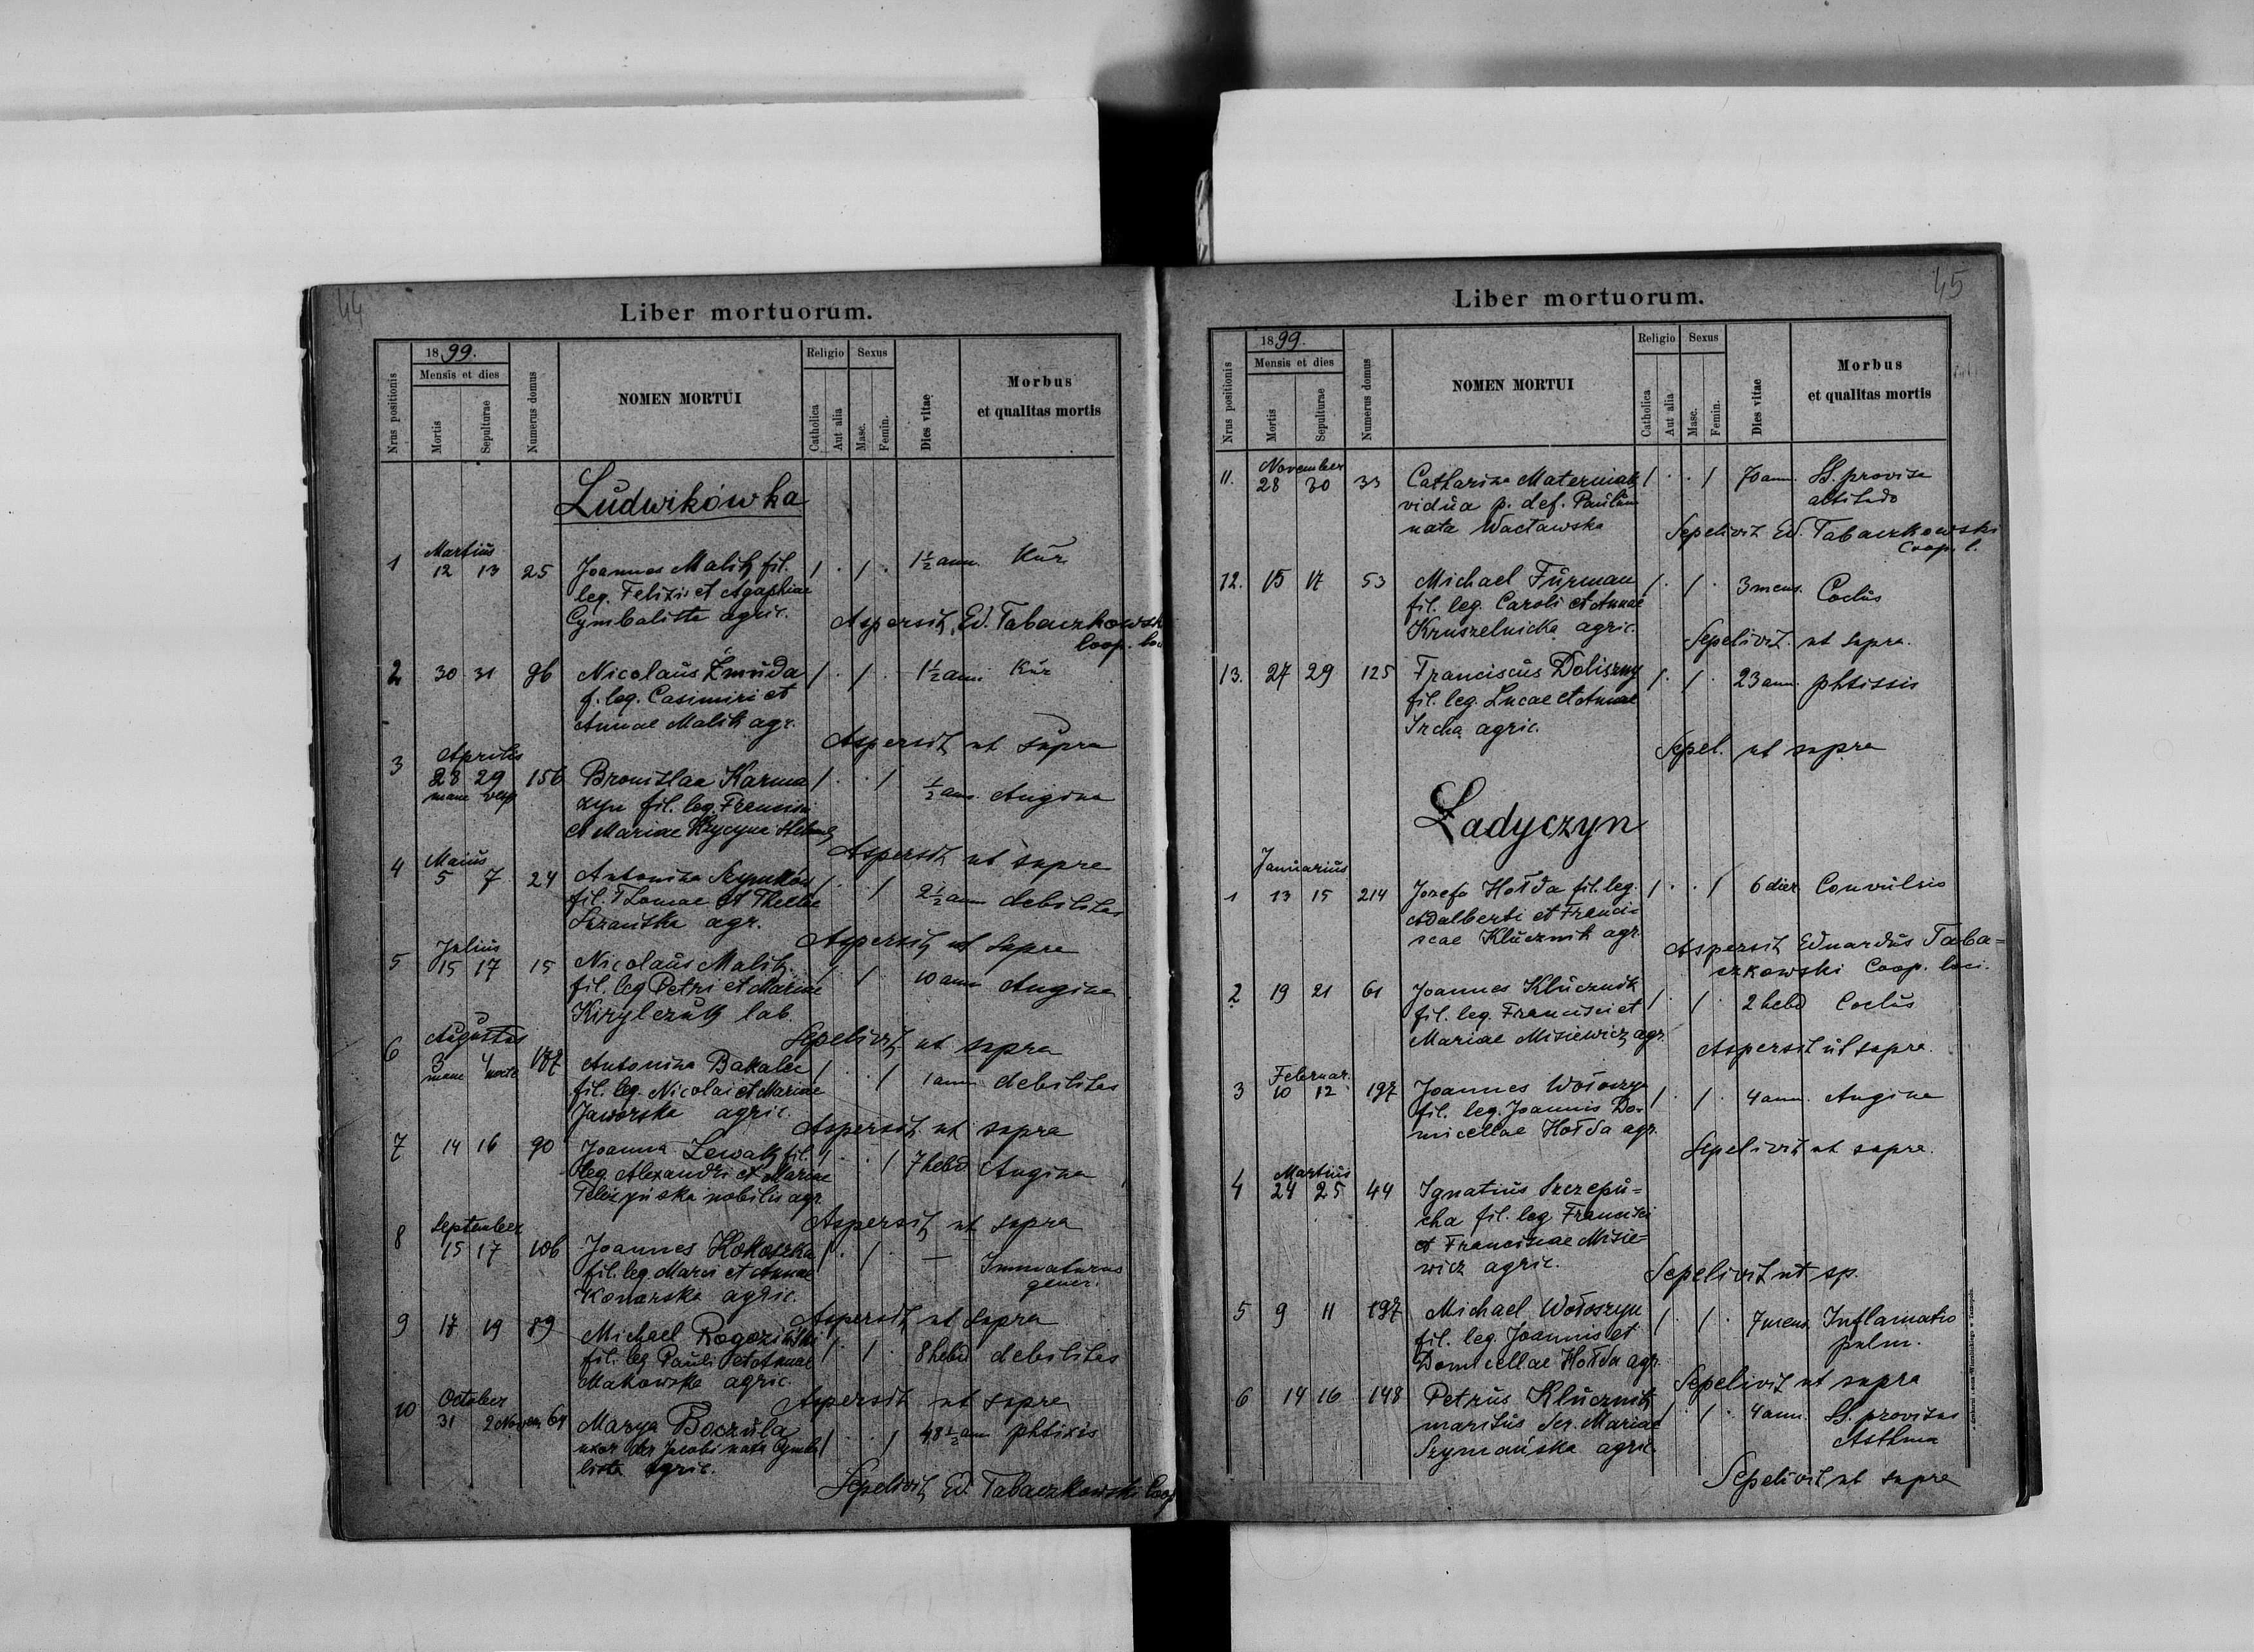 44
Liber mortuorum.
Nrus positionis
1899.
Mensis et dies
Mortis
Sepulturae
Numerus domus
NOMEN MORTUI
Religio
Catholica
Aut alia
Sexus
Masc.
Femin.
Dies vitae
Morbus
et qualitas mortis
Ludwikówka
Martius
1 12 13 25 Joannes Malik fil. / . / . 1½ ann. Kur
leg. Felixis et Agaphiae
Cymbalista agric.
Aspersit Ed. Tabaczkowsk
Coop. loc
2 30 31 96 Nicolaus Żmuda / . / . 1½ ann. Kur
f. leg. Casimiri et
Annae Malik agr.
Aspersit ut supra
Aprilis
3 28 29 156 Bronislaa Karma / . . / ½ ann. Angina
mane vesp
zyn fil. leg. Francisci
et Mariae
Aspersit ut supra
Maius
4 5 7 24 Antonina / . . / 2½ ann debilitas
fil. Thomae et Theclae
agr.
Aspersit ut supra
Julius
5 15 17 15 Nicolaus Malik / / 10 ann Angina
fil. leg Petri et Mariae
Kirylczuk lab.
Sepelivit ut supra
Augustus
6 3 4 187 Antonina Bakalec / . . / 1 ann debilitas
mane nocte
fil. leg. Nicolai et Mariae
Jaworska agric.
Aspersit ut supra
7 14 16 90 Joanna Lewak fil. / . . / 7 hebd Angina
leg. Alexandri et Mariae
nobilis agr.
Aspersit ut supra
September
8 15 17 106 Joannes Kokoszka / . / . — Immaturus
gener.
fil. leg. Marci et Annae
Konarska agric.
Aspersit ut supra
9 17 19 89 Michael Rogoziński / . / . 8 hebd debilitas
fil. leg Pauli et Annae
Makowska agric.
Aspersit ut supra
October
10 31 2 Novem 64 Marya Boczula / . . / 48½ ann phtisis
uxor Jacobi nata Cymba
lista agric.
Sepelivit Ed. Tabaczkowski Coop
45
Liber mortuorum.
Nrus positionis
1899.
Mensis et dies
Mortis
Sepulturae
Numerus domus
NOMEN MORTUI
Religio
Catholica
Aut alia
Sexus
Masc.
Femin.
Dies vitae
Morbus
et qualitas mortis
November
11. 28 30 33 Catharina Materniak / . . / 70 ann. SS. provisa
vidua p. def. Paulum
nata Wacławska
Sepelivit Ed. Tabaczkowski
Coop. l.
12. 15 17 53 Michael Furman / . / . 3 mens. Coclus
fil. leg. Caroli et Annae
Kruszelnicka agric.
Sepelivit. ut supra.
13. 27 29 125 Franciscus Doliszny / . / . 23 ann. phtissis
fil. leg. Lucae et Annae
Ircha agric.
Sepel. ut supra
Ładyczyn
Januarius
1 13 15 214 Jozefa Hołda fil. leg. / . . / 6 dier Convulsio
Adalberti et Franci=
scae Klucznik agr.
Aspersit Eduardus Taba=
czkowski Coop. loci.
2 19 21 61 Joannes Klucznik / . / . 2 hebd Coclus
fil. leg. Francisci et
Mariae Misiewicz agr.
Aspersit ut supra.
Februar.
3 10 12 197 Joannes Wołoszyn / . / . 4 ann. Angina
fil. leg. Joannis Do=
micellae Hołda agr.
Sepelivit ut supra.
Martius
4 24 25 44 Ignatius Szczepu=
cha fil. leg Francisci
et Franciscae Misie=
wicz agric.
Sepelivit ut sp.
5 9 11 197 Michael Wołoszyn / . / . 7 mens. Inflamatio
pulm.
fil. leg. Joannis et
Domicellae Hołda agr.
Sepelivit ut supra
6 14 16 148 Petrus Klucznik / . / . 4 ann. SS. provisus
Asthma
maritus Mariae
Szymańska agric.
Sepelivit ut supra